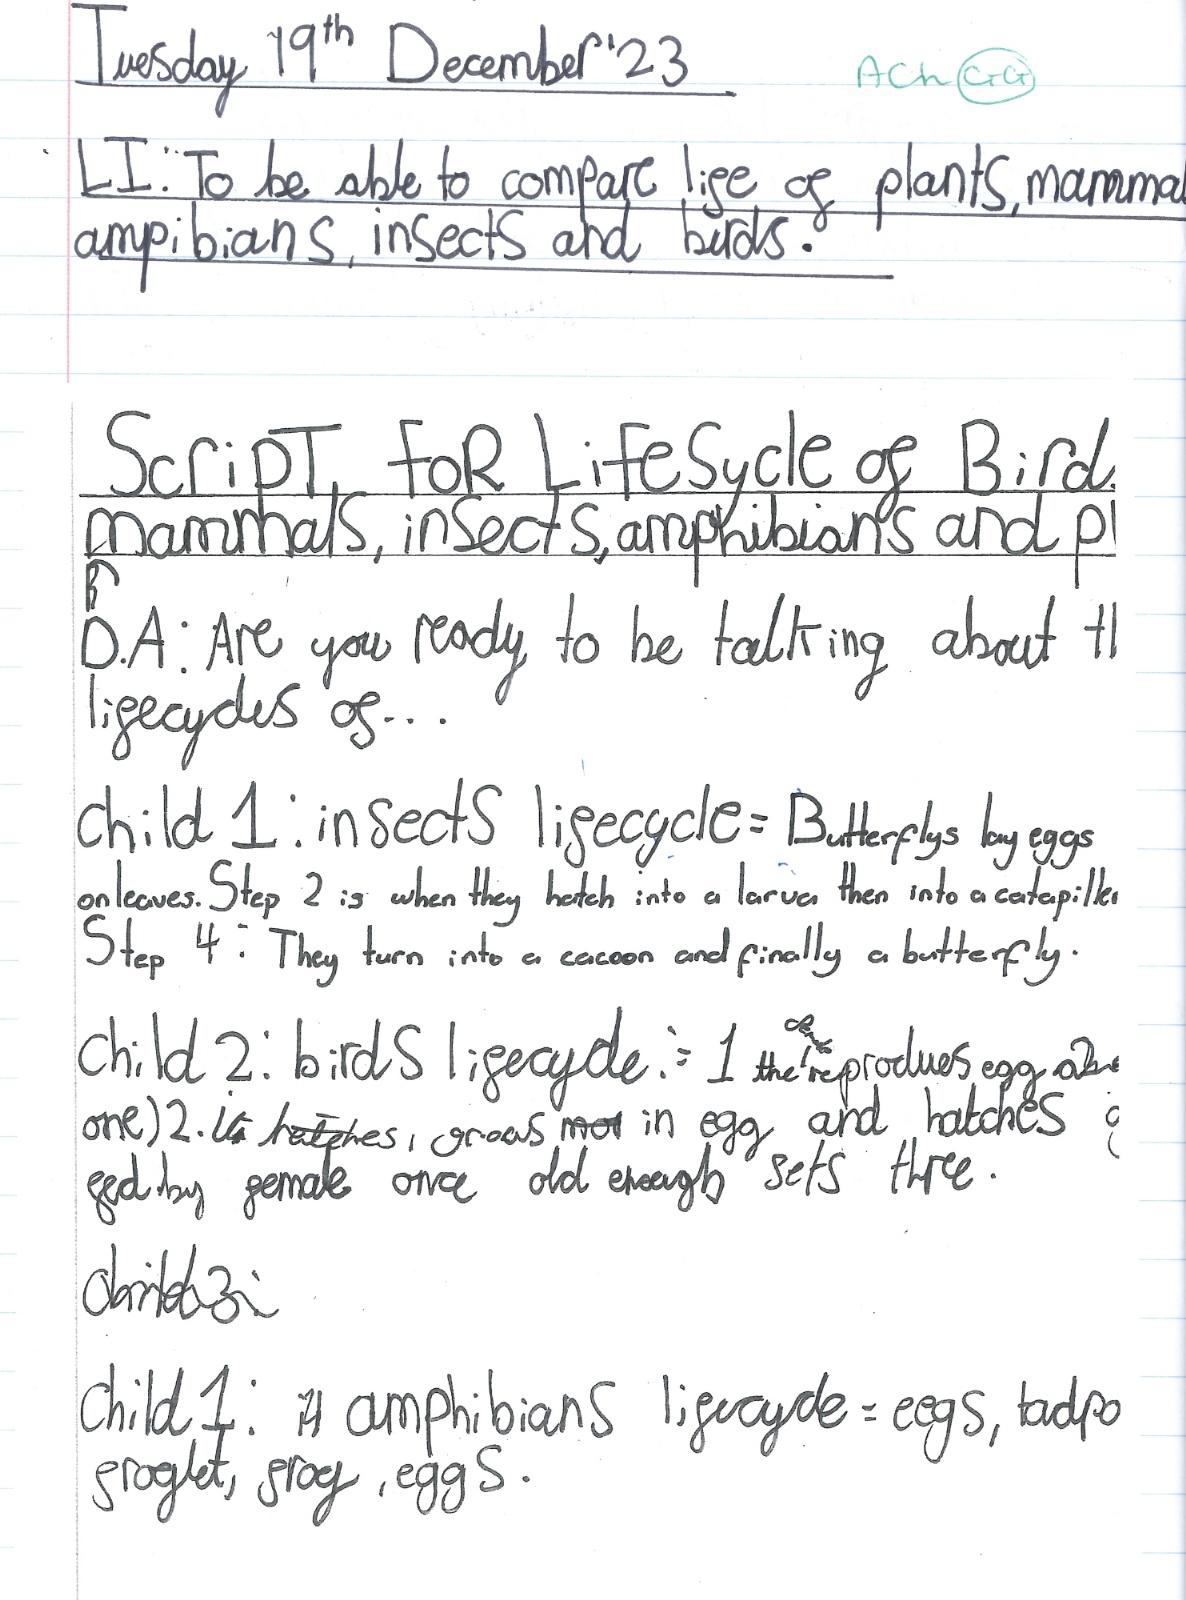 Tuesday 19th December '23
ACh GG
LI: To be able to compare life of plants, mammal
ampibians, insects and birds.
Script for Lifesycle of Bird,
mammals, insects, amphibians and pl
D.A: Are you ready to be talking about th
lifecycles of...
Child 1: insects lifecycle = Butterflys lay eggs
on leaves. Step 2 is when they hatch into a larva then into a catapiller
Step 4: They turn into a cacoon and finally a butterfly.
Child 2: birds lifecycle := 1 the reprodues egg
one) 2. it hatches, grows in egg and hatches
fed by female once old enough sets three.
child 3:
Child 1: amphibians lifecycle = eegs, tadpo
froglet, frog, eggs.